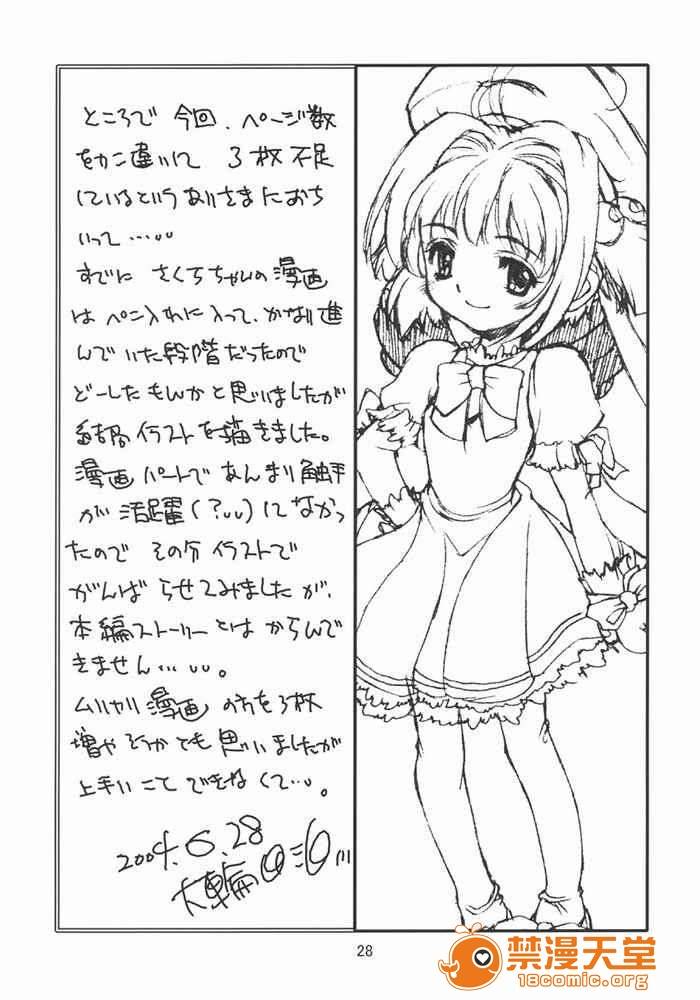 ところで 今回、ページ数
をカン違いして 3枚不足
しているというありさまにおち
いって……
すでに さくらちゃんの漫画
は ペン入れに入って、かなり進
んでいた段階だったので
どーしたもんかと思いましたが
結局イラストを描きました。
漫画パートであんまり触手
が 活躍(?…)してなかっ
たので その分イラストで
がんばらせてみましたが、
本編ストーリーとは からんで
きません……。
ムリヤリ漫画の方を3枚
増やそうかとも思いましたが
上手いことできなくて…。
2004.6.28
28
禁漫天堂
18comic.org